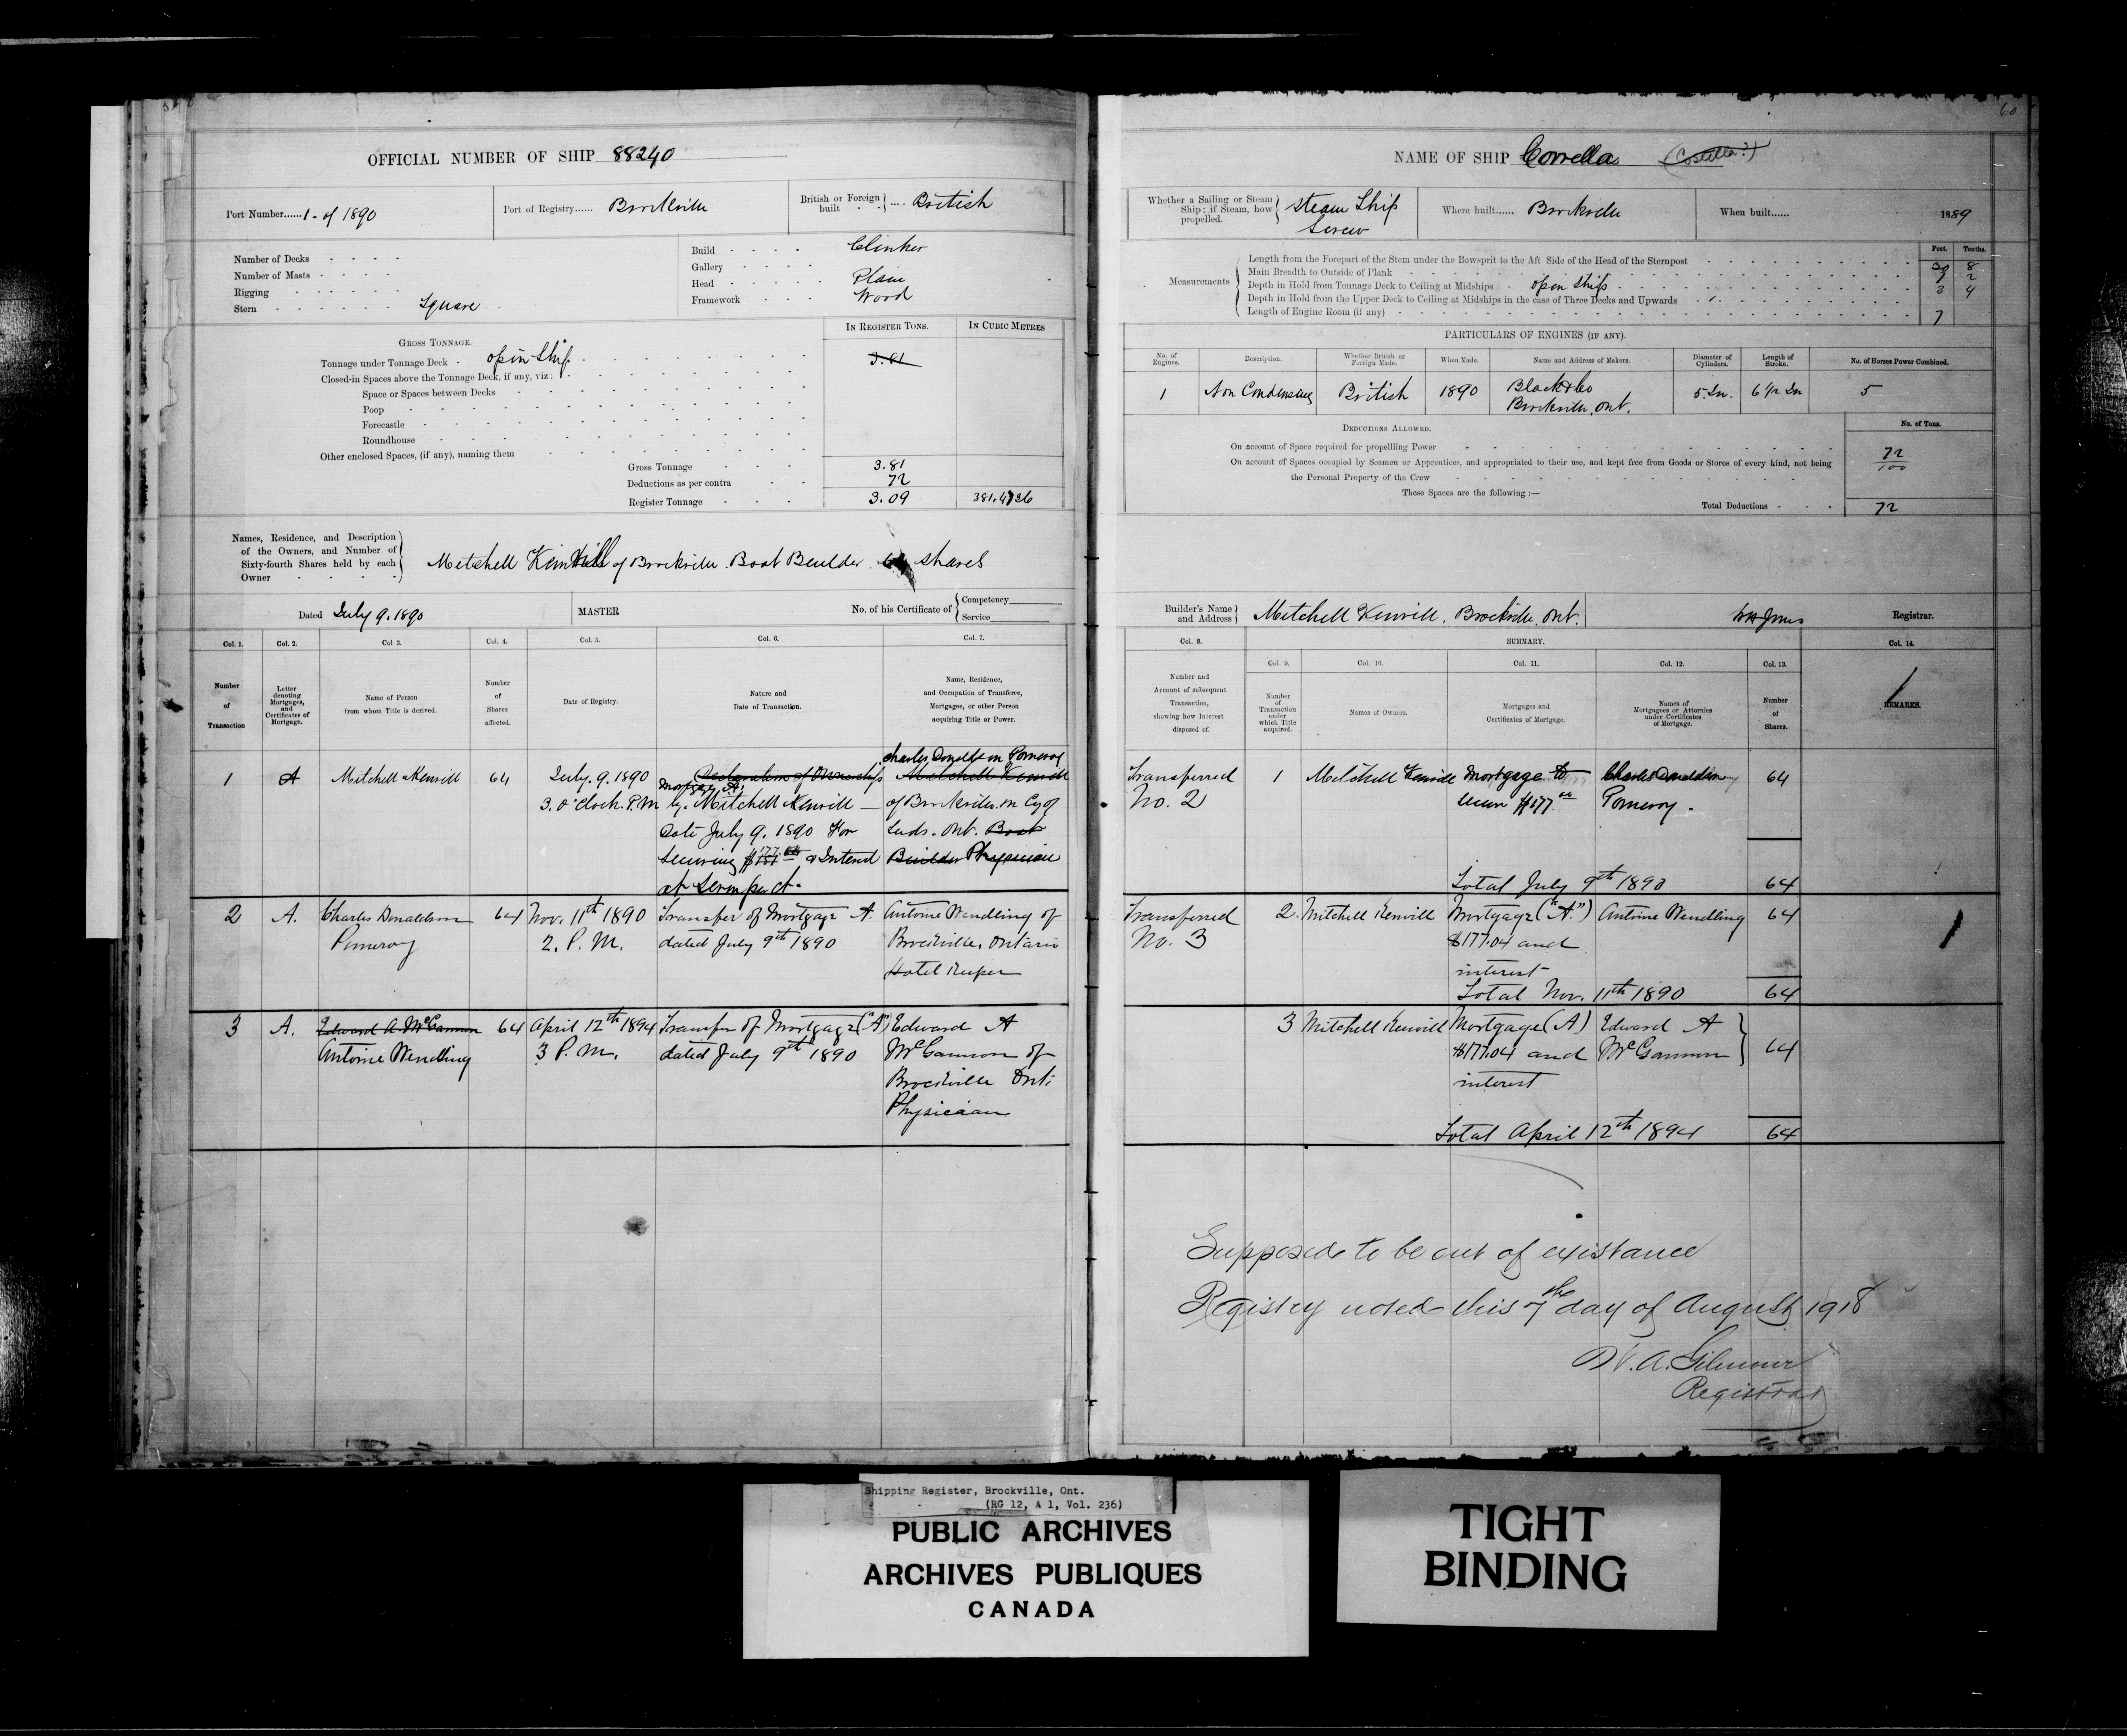 OFFICIAL NUMBER OF SHIP 88240
Port Number......1 - of 1890
Port of Registry...... Brockville
British or Foreign built .... British
Number of Decks
Number of Masts
Rigging
Stern Square
Build Clinker
Gallery
Head Plain
Framework Wood
IN REGISTER TONS.
IN CUBIC METRES
GROSS TONNAGE.
Tonnage under Tonnage Deck open Ship 3.81
Closed-in Spaces above the Tonnage Deck, if any, viz:
Space or Spaces between Decks
Poop
Forecastle
Roundhouse
Other enclosed Spaces, (if any), naming them
Gross Tonnage 3.81
Deductions as per contra 72
Register Tonnage 3.09
Names, Residence, and Description
of the Owners, and Number of
Sixty-fourth Shares held by each
Owner
Mitchell Kenvill of Brockville. Boat Builder. 64 shares
Dated July 9. 1890
MASTER
No. of his Certificate of
Competency
Service
Col. 1. Col. 2. Col 3. Col. 4. Col. 5. Col. 6. Col. 7.
Number of Transaction
Letter denoting Mortgages, and Certificates of Mortgage.
Name of Person from whom Title is derived.
Number of Shares affected.
Date of Registry.
Nature and Date of Transaction.
Name, Residence, and Occupation of Transferee, Mortgagee, or other Person acquiring Title or Power.
1 A Mitchell Kenvill 64
July. 9. 1890
3. O'Clock. P.M
Declaration of Ownership
Mortgage "A"
by. Mitchell Kenvill
Date July 9. 1890 For
Securing $177 & Interest
at per ct.
Charles Donaldson Pomeroy
Mitchell Kenvill
of Brockville. in Cy of
Leds. Ont. Boat
Builder Physician
2 A. Charles Donaldson
Pomeroy
64
Nov. 11th 1890
2. P. M.
Transfer of Mortgage A.
dated July 9th 1890
Antoine Wendling of
Brockville, Ontario
Hotel Keeper
3 A. Edward A. McGannon
Antoine Wendling
64
April 12th 1894
3 P. M.
Transfer of Mortgage ("A")
dated July 9th 1890
Edward A
McGannon of
Brockville Ont.
Physician
60
NAME OF SHIP Corrella (Costella?)
Whether a Sailing or Steam
Ship; if Steam, how
propelled.
Steam Ship
Screw
Where built...... Brockville
When built...... 1889
Feet. Tenths.
Measurements
Length from the Forepart of the Stem under the Bowsprit to the Aft Side of the Head of the Sternpost 30 8
Main Breadth to Outside of Plank 7 2
Depth in Hold from Tonnage Deck to Ceiling at Midships open Ship 3 4
Depth in Hold from the Upper Deck to Ceiling at Midships in the case of Three Decks and Upwards
Length of Engine Room (if any) 7
PARTICULARS OF ENGINES (IF ANY).
No. of Engines.
Description.
Whether British or Foreign Made.
When Made.
Name and Address of Makers.
Diameter of Cylinders.
Length of Stroke.
No. of Horses Power Combined.
1 Non Condensing British 1890 Black & Co 5 In. 6 1/2 In 5
Brockville, Ont.
DEDUCTIONS ALLOWED.
No. of Tons.
On account of Space required for propellling Power 72/100
On account of Spaces occupied by Seamen or Apprentices, and appropriated to their use, and kept free from Goods or Stores of every kind, not being
the Personal Property of the Crew
These Spaces are the following :—
Total Deductions 72
Builder's Name
and Address
Mitchell Kenvill, Brockville. Ont.
WH Jones
Registrar.
Col. 8. SUMMARY. Col. 14.
Col. 9. Col. 10. Col. 11. Col. 12. Col. 13.
Number and Account of subsequent Transaction, showing how Interest disposed of.
Number of Transaction under which Title acquired.
Names of Owners.
Mortgages and Certificates of Mortgage.
Names of Mortgagees or Attornies under Certificates of Mortgage.
Number of Shares.
REMARKS.
Transferred
No. 2
1 Mitchell Kenvill
Mortgage to
secure $177
Charles Donaldson
Pomeroy.
64
Total July 9th 1890 64
Transferred
No. 3
2. Mitchell Kenvill
Mortgage ("A.")
$177.04 and
interest
Antoine Wendling
64
Total Nov. 11th 1890 64
3 Mitchell Kenvill
Mortgage (A)
$177.04 and
interest
Edward A
McGannon
64
Total April 12th 1894 64
Supposed to be out of existance
Registry noted this 7th day of August 1918
W. A. Gilmour
Registrar
Shipping Register, Brockville, Ont.
(RG 12, A 1, Vol. 236)
PUBLIC ARCHIVES
ARCHIVES PUBLIQUES
CANADA
TIGHT
BINDING